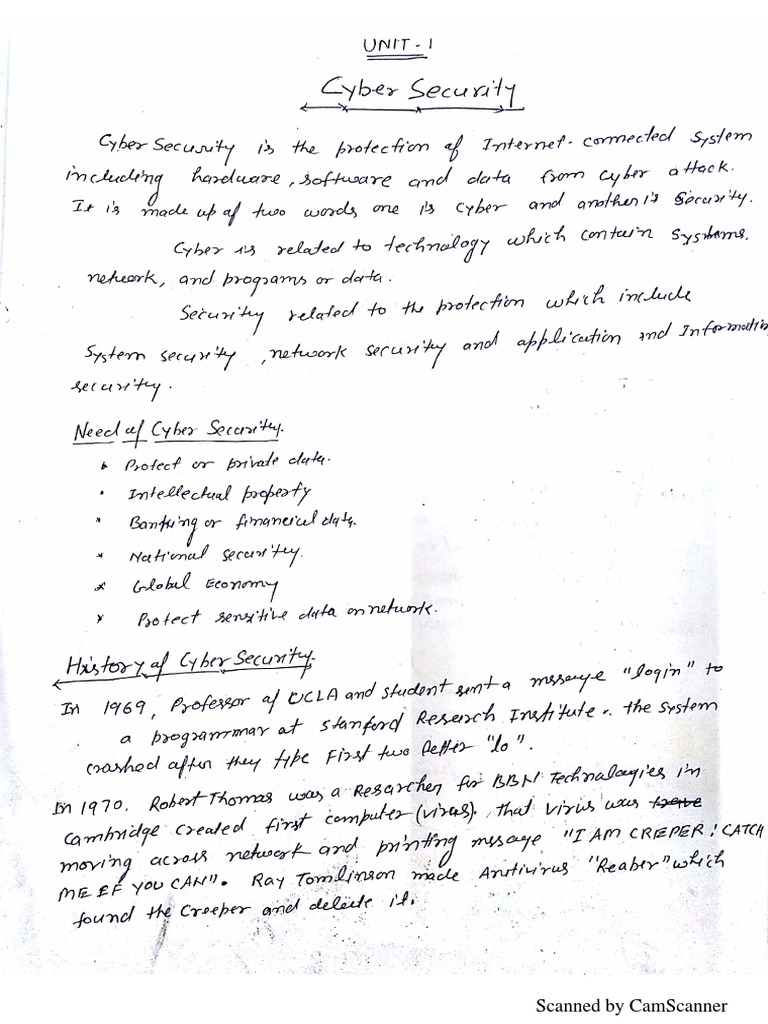 UNIT - 1
Cyber Security
Cyber Security is the protection of Internet-connected System
including hardware, software and data from cyber attack.
It is made up of two words one is cyber and another is Security.
Cyber is related to technology which contain systems,
network, and programs or data.
Security related to the protection which include
System security, network security and application and Informatin
security.
Need of Cyber Security.
Protect or private data.
Intellectual property
Banking or financial data.
National security.
Global Economy
Protect sensitive data on network.
History of Cyber Security.
In 1969, Professor of UCLA and student sent a message "login" to
a programmar at Stanford Reserch Institute. the System
crashed after they type First two letter "lo".
In 1970. Robert Thomas was a Researcher for BBN Technalogies in
Cambridge created first computer (virus). that virus was
moving across network and printing message "I AM CREPER! CATCH
ME EF YOU CAN". Ray Tomlinson made Antivirus "Reaber" which
found the Creeper and delete it.
Scanned by CamScanner